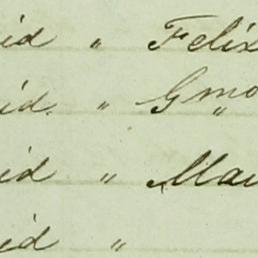 id " Felix
id. " Gmo
id " Mau
id "